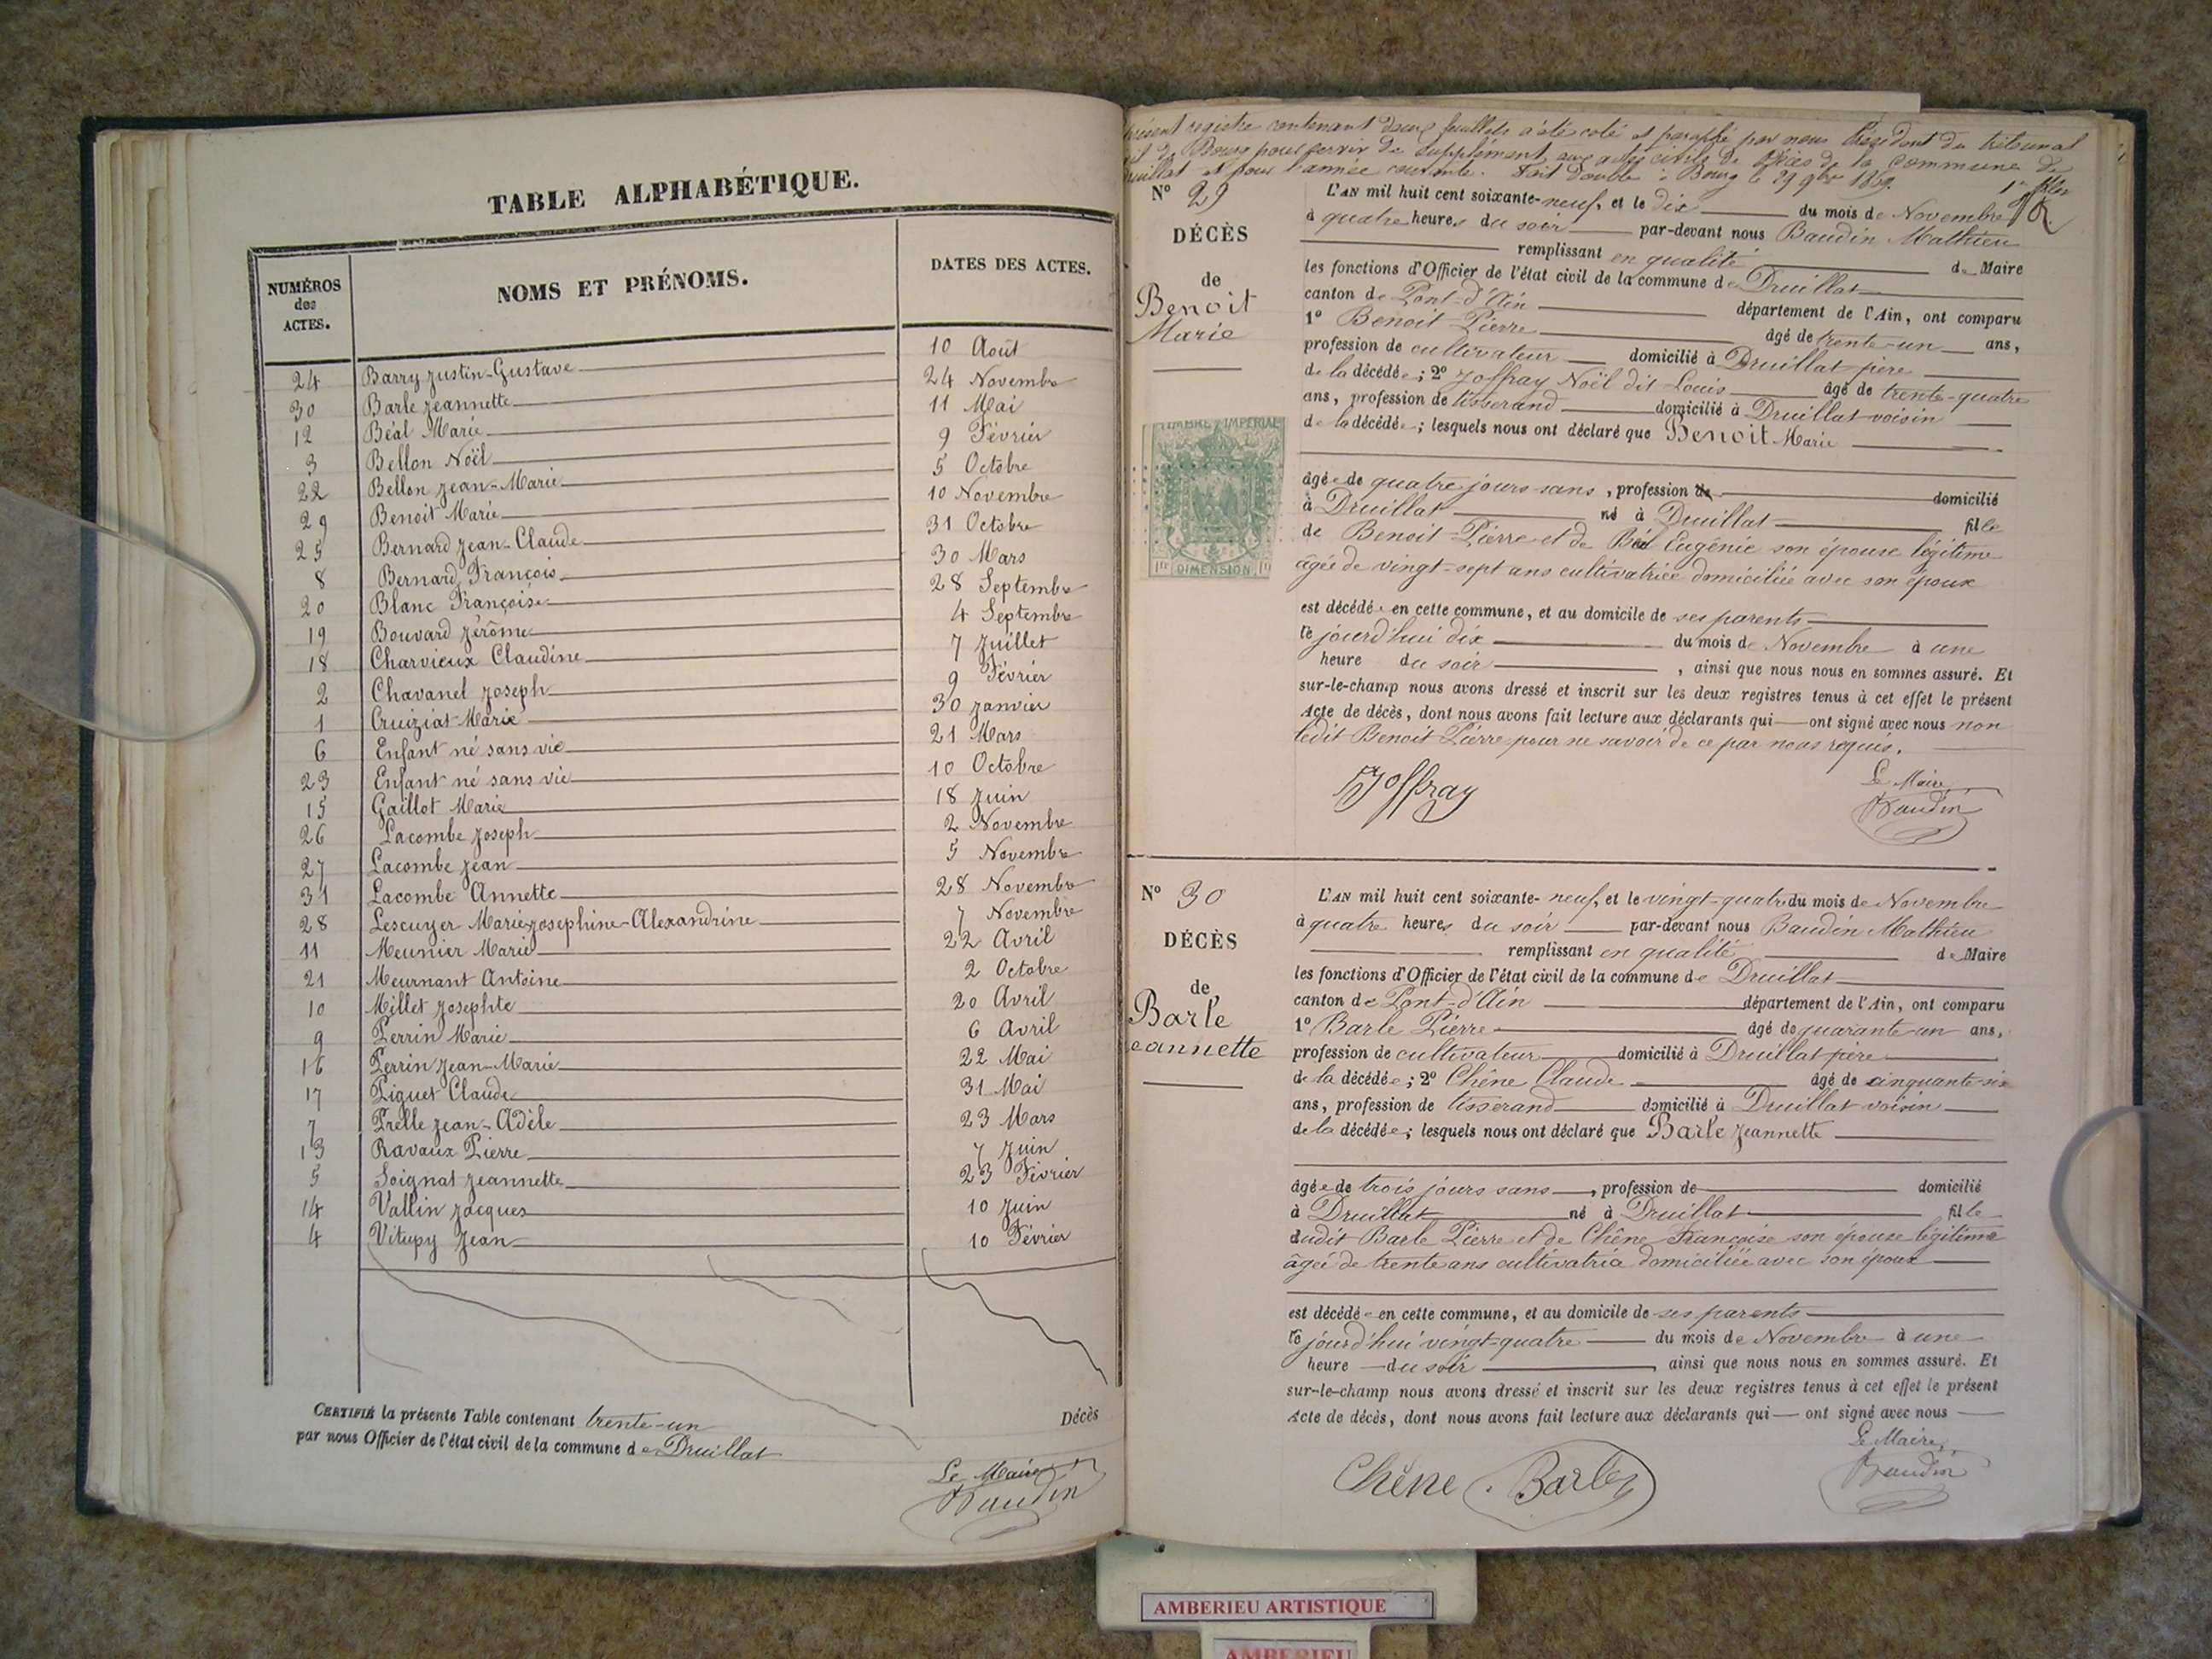 TABLE ALPHABÉTIQUE.
NUMÉROS des ACTES. NOMS ET PRÉNOMS. DATES DES ACTES.
24 Barry Justin-Gustave 10 Août
30 Barle Jeannette 24 Novembre
12 Béal Marie 11 Mai
3 Bellon Noël 9 Février
22 Bellon Jean-Marie 5 Octobre
29 Benoit Marie 10 Novembre
25 Bernard Jean-Claude 31 Octobre
8 Bernard François 30 Mars
20 Blanc Françoise 28 Septembre
19 Bouvard Jérôme 4 Septembre
18 Charvieux Claudine 7 Juillet
2 Chavanel Joseph 9 Février
1 Cruiziat Marie 30 Janvier
6 Enfant né sans vie 21 Mars
23 Enfant né sans vie 10 Octobre
15 Gaillot Marie 18 Juin
26 Lacombe Joseph 2 Novembre
27 Lacombe Jean 5 Novembre
31 Lacombe Annette 28 Novembre
28 Lescuyer Marie-Josephine-Alexandrine 7 Novembre
11 Meunier Marie 22 Avril
21 Meurnant Antoine 2 Octobre
10 Millet Josephte 20 Avril
9 Perrin Marie 6 Avril
16 Perrin Jean-Marie 22 Mai
17 Piguet Claude 31 Mai
7 Prelle Jean-Adèle 23 Mars
13 Ravaux Pierre 7 Juin
5 Soignat Jeannette 23 Février
14 Vallin Jacques 10 Juin
4 Vitupy Jean 10 Février
CERTIFIÉ la présente Table contenant trente-un Décès
par nous Officier de l'état civil de la commune de Druillat
Le Maire
Baudin
présent registre contenant deux feuillets a été coté et paraphé par nous Président du tribunal
de Bourg pour servir de supplément aux actes civils de Décès de la commune de
Druillat et pour l'année courante. Fait double à Bourg le 29 9bre 1869.
N° 29
DÉCÈS
de
Benoit
Marie
TIMBRE IMPÉRIAL
DIMENSION
L'AN mil huit cent soixante-neuf, et le dix du mois de Novembre
à quatre heures du soir par-devant nous Baudin Mathieu
remplissant en qualité de Maire
les fonctions d'Officier de l'état civil de la commune de Druillat
canton de Pont-d'Ain département de l'Ain, ont comparu
1° Benoit Pierre âgé de trente-un ans,
profession de cultivateur domicilié à Druillat père
de la décédée; 2° Joffray Noël dit Louis âgé de trente-quatre
ans, profession de tisserand domicilié à Druillat voisin
de la décédée; lesquels nous ont déclaré que Benoit Marie
âgée de quatre jours sans, profession de domicilié
à Druillat né à Druillat fille
de Benoit Pierre et de Eugénie son épouse légitime
âgée de vingt-sept ans cultivatrice domiciliée avec son époux
est décédée en cette commune, et au domicile de ses parents
ce jourd'hui dix du mois de Novembre à une
heure du soir, ainsi que nous nous en sommes assuré. Et
sur-le-champ nous avons dressé et inscrit sur les deux registres tenus à cet effet le présent
Acte de décès, dont nous avons fait lecture aux déclarants qui ont signé avec nous non
ledit Benoit Pierre pour ne savoir de ce par nous requis.
Joffray Le Maire
Baudin
N° 30
DÉCÈS
de
Barle
eannette
L'AN mil huit cent soixante-neuf, et le vingt-quatre du mois de Novembre
à quatre heures du soir par-devant nous Baudin Mathieu
remplissant en qualité de Maire
les fonctions d'Officier de l'état civil de la commune de Druillat
canton de Pont-d'Ain département de l'Ain, ont comparu
1° Barle Pierre âgé de quarante-un ans,
profession de cultivateur domicilié à Druillat père
de la décédée; 2° Chêne Claude âgé de cinquante-six
ans, profession de tisserand domicilié à Druillat voisin
de la décédée; lesquels nous ont déclaré que Barle Jeannette
âgée de trois jours sans, profession de domicilié
à Druillat né à Druillat fille
dudit Barle Pierre et de Chêne Françoise son épouse légitime
âgée de trente ans cultivatrice domiciliée avec son époux
est décédée en cette commune, et au domicile de ses parents
ce jourd'hui vingt-quatre du mois de Novembre à une
heure du soir, ainsi que nous nous en sommes assuré. Et
sur-le-champ nous avons dressé et inscrit sur les deux registres tenus à cet effet le présent
Acte de décès, dont nous avons fait lecture aux déclarants qui ont signé avec nous
Le Maire,
Chêne Barle Baudin
AMBERIEU ARTISTIQUE
AMBERIEU